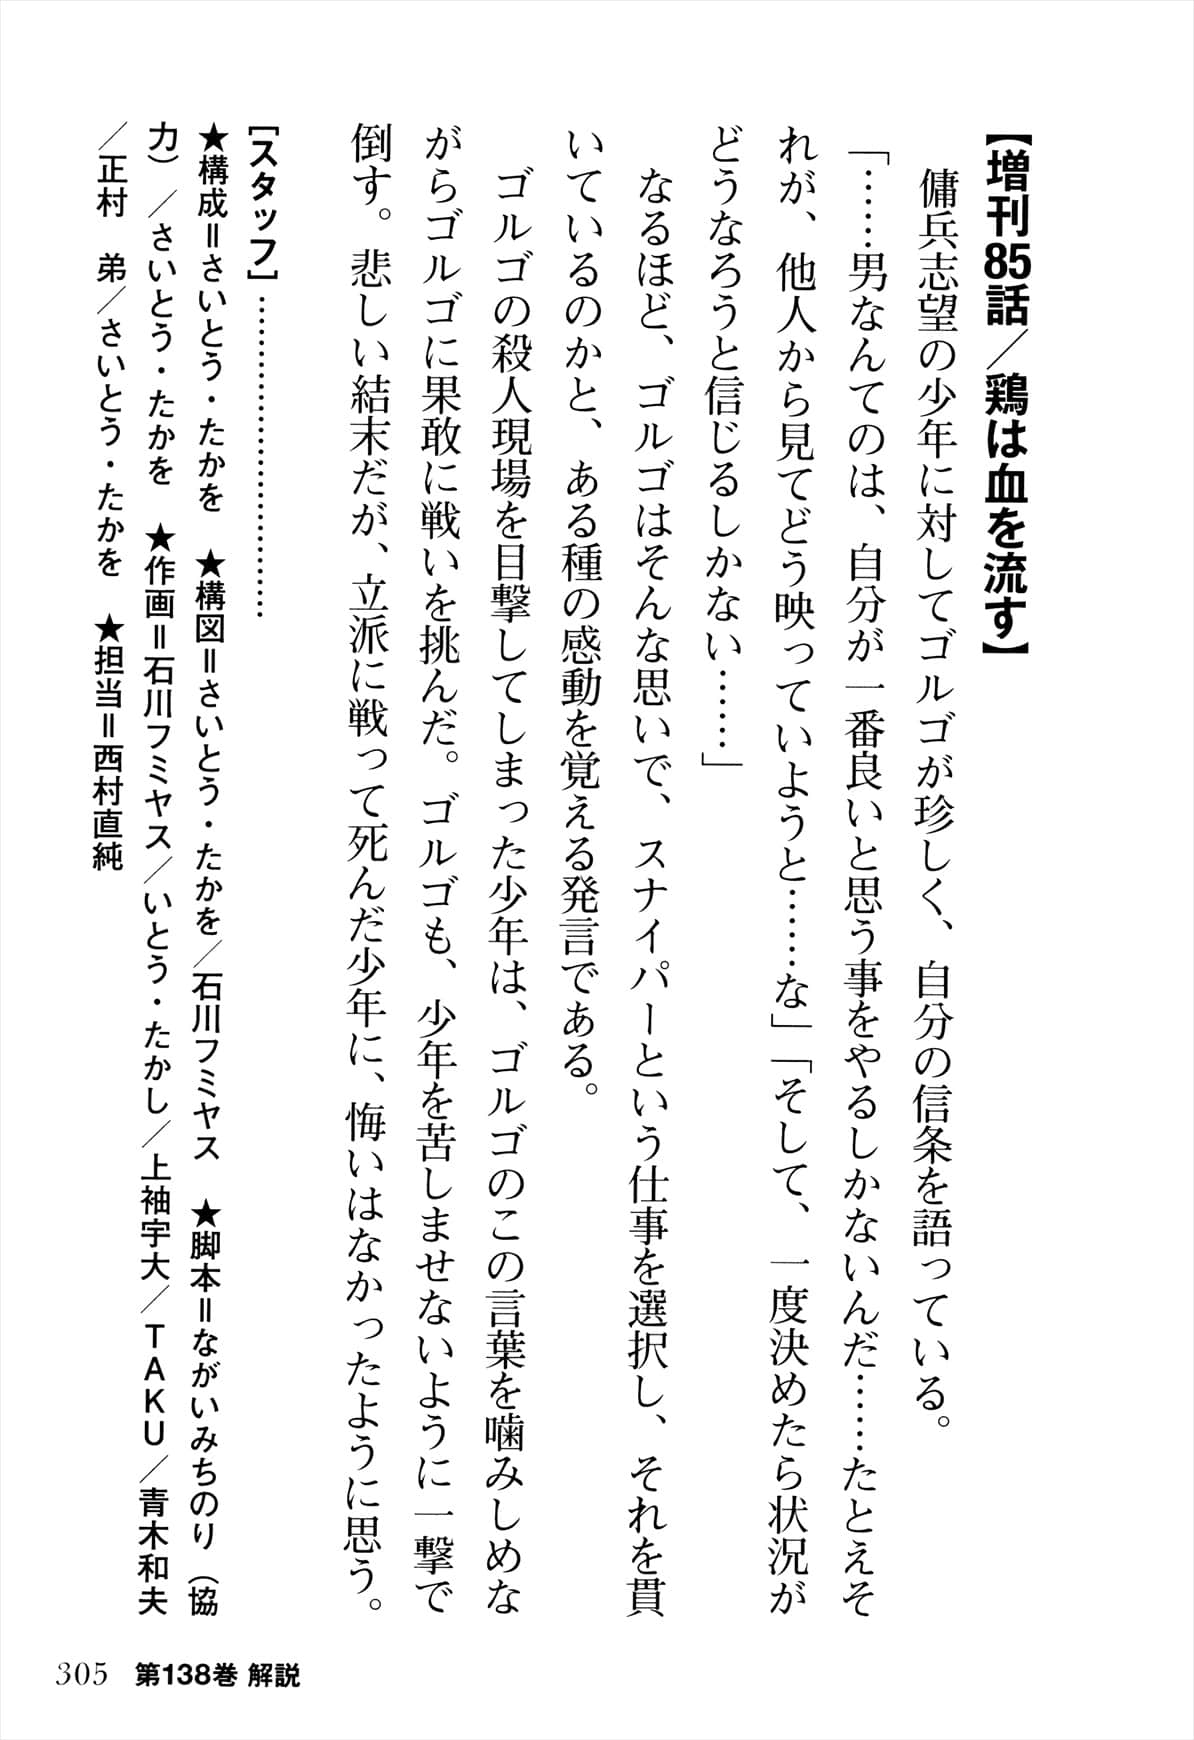 【増刊85話／鶏は血を流す】
　傭兵志望の少年に対してゴルゴが珍しく、自分の信条を語っている。
「……男なんてのは、自分が一番良いと思う事をやるしかないんだ……たとえそ
れが、他人から見てどう映っていようと……な」「そして、一度決めたら状況が
どうなろうと信じるしかない……」
　なるほど、ゴルゴはそんな思いで、スナイパーという仕事を選択し、それを貫
いているのかと、ある種の感動を覚える発言である。
　ゴルゴの殺人現場を目撃してしまった少年は、ゴルゴのこの言葉を噛みしめな
がらゴルゴに果敢に戦いを挑んだ。ゴルゴも、少年を苦しませないように一撃で
倒す。悲しい結末だが、立派に戦って死んだ少年に、悔いはなかったように思う。
［スタッフ］…………………………
★構成＝さいとう・たかを　★構図＝さいとう・たかを／石川フミヤス　★脚本＝ながいみちのり（協
力）／さいとう・たかを　★作画＝石川フミヤス／いとう・たかし／上袖宇大／ＴＡＫＵ／青木和夫
／正村　弟／さいとう・たかを　★担当＝西村直純
305　第138巻 解説